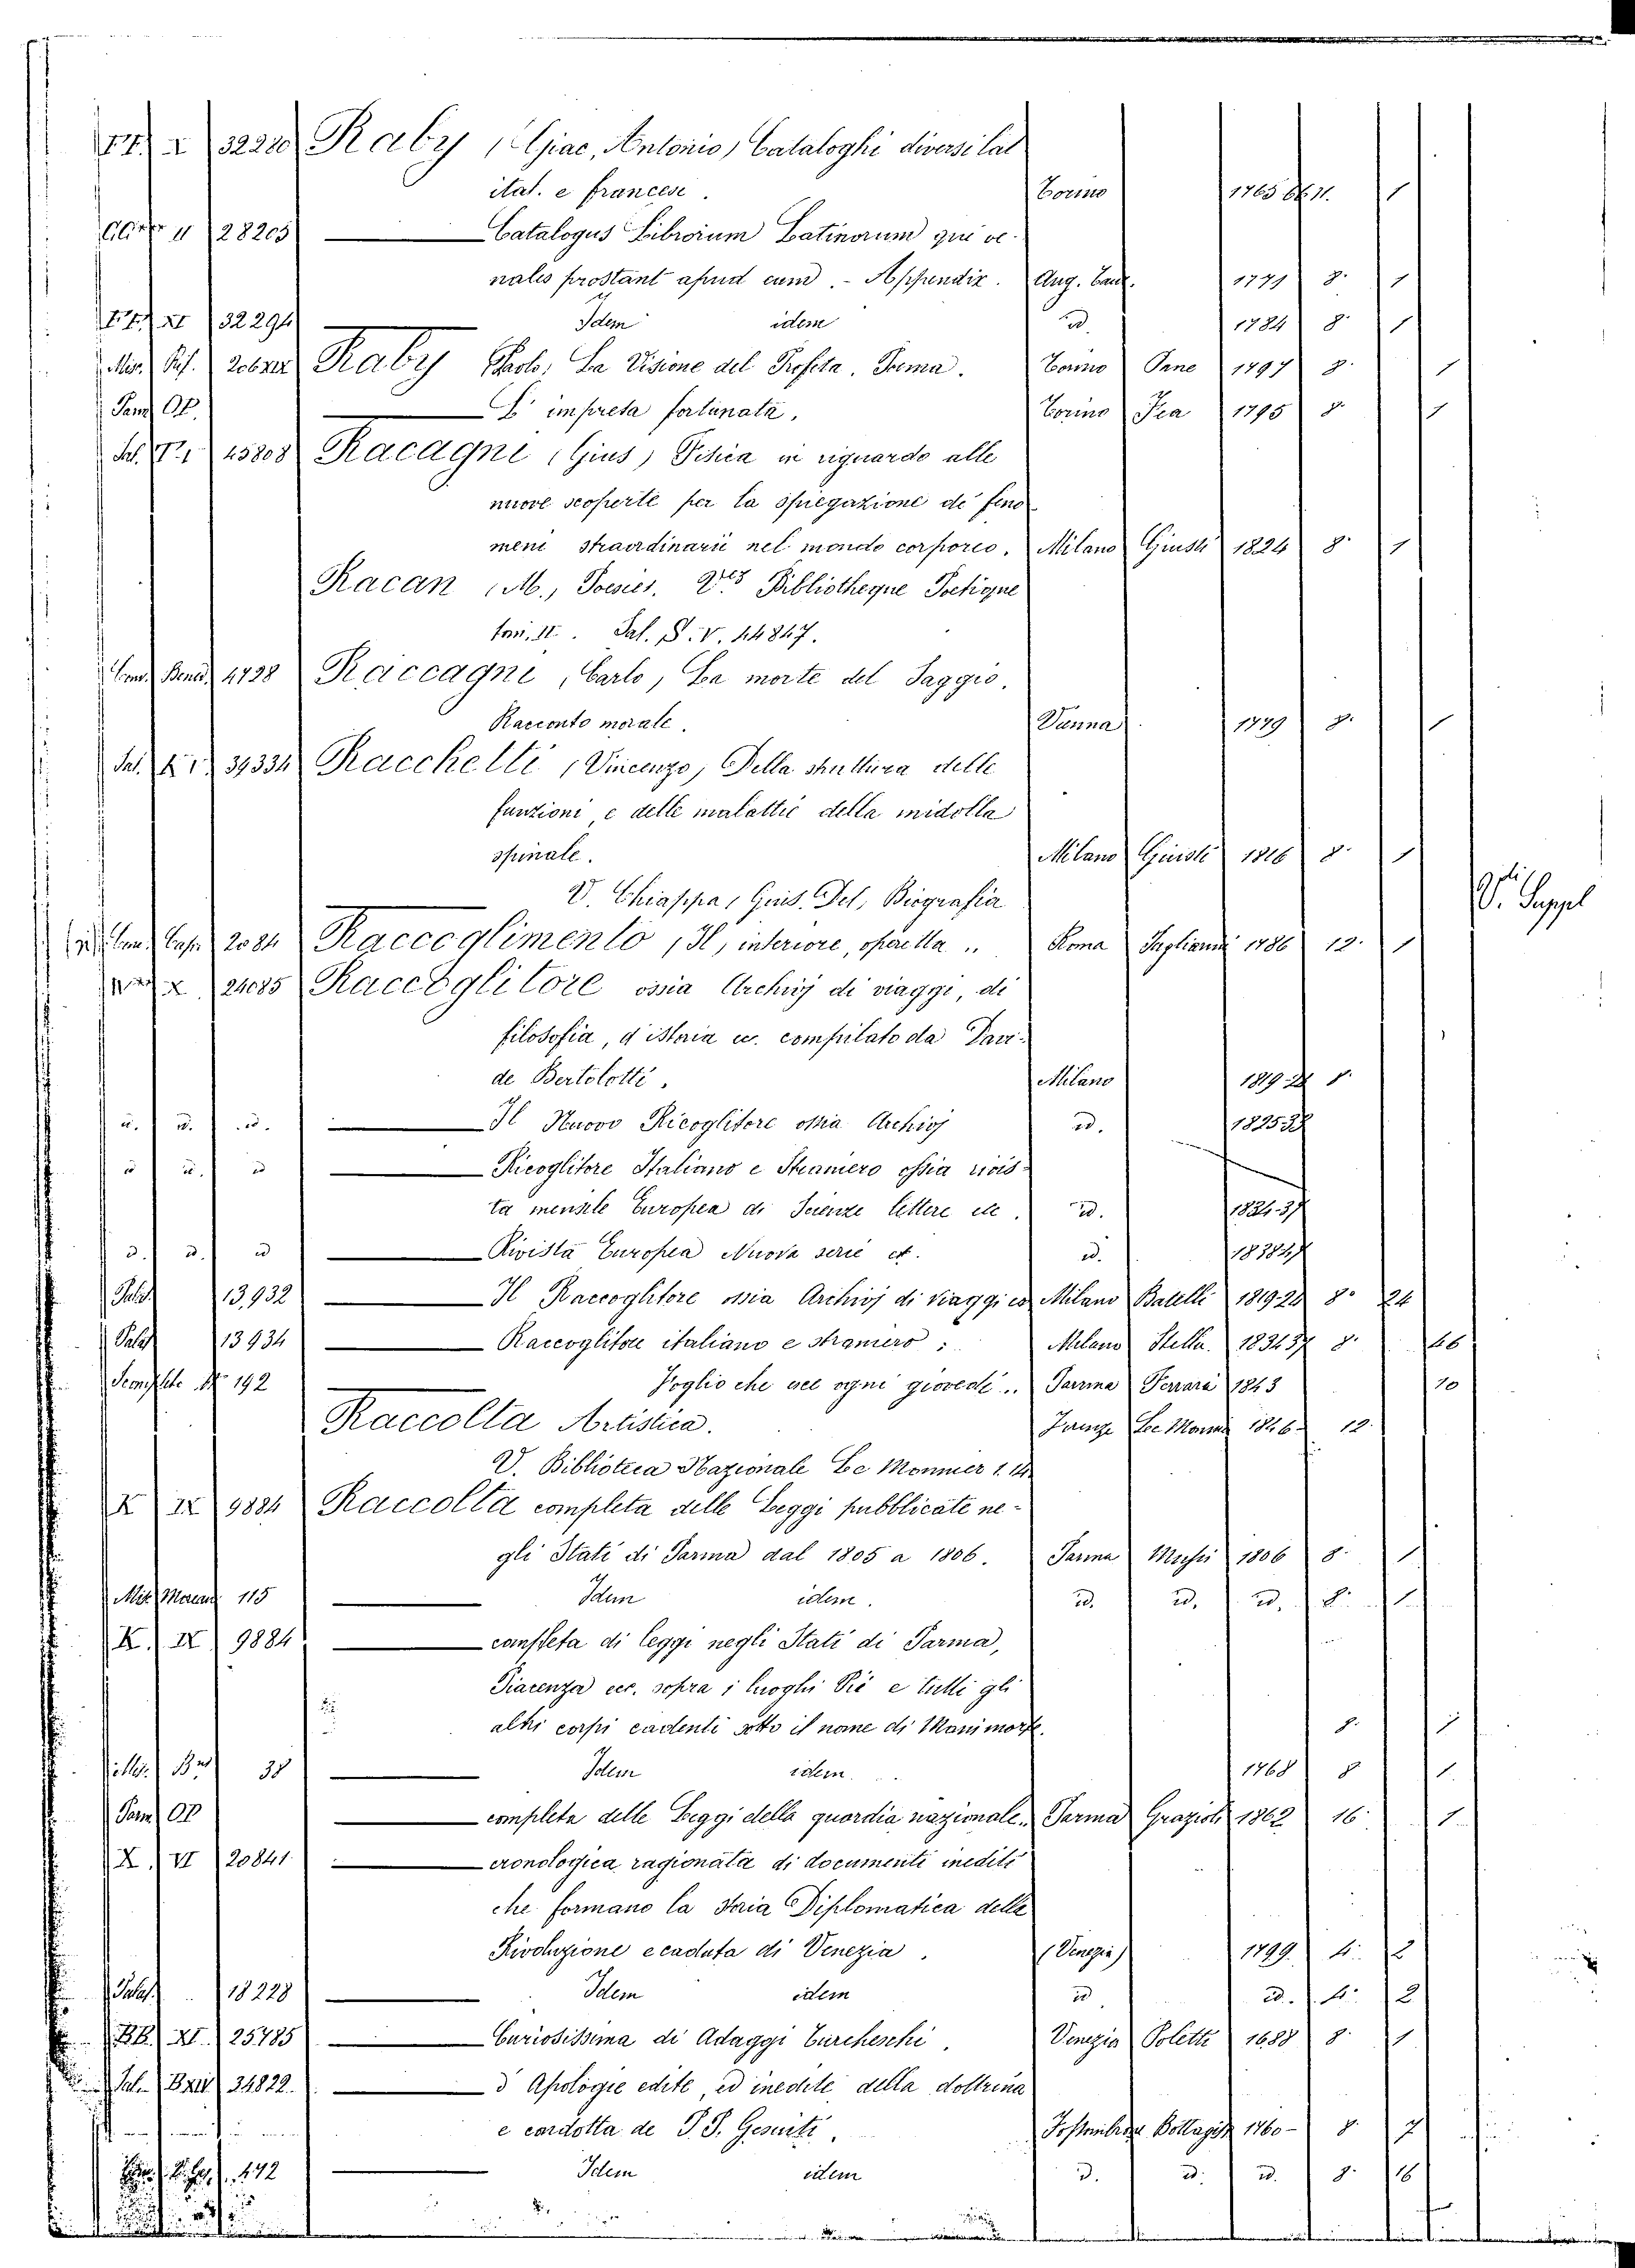 32220 Raby (Giac. Antonio) Cataloghi diversi lat
ital. e francese. Torino 1765 1
28205 Catalogus Librorum Latinorum qui ve-
nales prostant apud eum. - Appendix. Aug. Taur. 1771 8. 1
XI 32294 Idem idem id. 1784 8. 1
Raby Paolo, La Visione del Profeta. Poema. Torino Pane 1797 8. 1
OP. L'impresa fortunata. Torino Fea 1795 8. 1
45808 Racagni (Gius) Teoria in riguardo alle
nuove scoperte per la spiegazione de' feno
meni straordinarii nel mondo corporeo. Milano Giusti 1824 8. 1
Racan (M.) Poesies. Bibliotheque Poetique
tom. II. Pal. S. V. 44847.
4728 Raccagni, Carlo, La morte del Saggio.
Racconto morale. Vienna 1779 8. 1
39334 Racchetti (Vincenzo) Della struttura delle
funzioni, e delle malattie della midolla
spinale. Milano Giusti 1816 8. 1
V. Chiappa, Gius. Del, Biografia
V. Suppl
2084 Raccoglimento, Il, interiore, operetta .. Roma 1786 12. 1
X 24085 Raccoglitore ossia Archivj di viaggi, di
filosofia, d'istoria ec. compilato da Davi-
de Bertolotti. Milano 1819-24 8.
id. id. id. Il Nuovo Ricoglitore ossia Archivj id. 1825-33
id. id. id. Ricoglitore Italiano e Straniero ossia rivis-
ta mensile Europea di Scienze lettere etc. id. 1834-37
id. id. id. Rivista Europea Nuova serie id. 1838-47
Palat 13,932 Il Raccoglitore ossia Archivj di viaggi ec Milano Batelli 1819-24 8. 24
Palat 13934 Raccoglitore italiano e straniero; Milano Stella. 1834-37 8.
192 Foglio che esce ogni giovedi.. Parma Ferrari 1843 10
Raccolta Artistica. Firenze Le Monnier 1846 12.
V. Biblioteca Nazionale Le Monnier 1. 14
K IX 9884 Raccolta completa delle Leggi pubblicate ne-
gli Stati di Parma dal 1805 a 1806. Parma Mussi 1806 8. 1
115 Idem idem. id. id. id. 8. 1
K. IX 9884 completa di leggi negli Stati di Parma,
Piacenza ecc. sopra i luoghi Pii e tutti gli
altri corpi cadenti sotto il nome di Manimorte. 8. 1
38 Idem idem 1768 8 1
OP completa delle Leggi della guardia nazionale. Parma Grazioli 1862 16. 1
X. VI 20841 cronologica ragionata di documenti inediti
che formano la storia Diplomatica della
Rivoluzione e caduta di Venezia. (Venezia) 1799. 4. 2
Palat. 18228 Idem idem id id. 4. 2
BB. XI. 25785 Curiosissima di Adaggi Turcheschi. Venezia Poletti 1688 8. 1
Pal. 34822. d'Apologie edite, ed inedite della dottrina
e condotta de P. P. Gesuiti. Bottagisi 1760- 8. 7
Idem idem id. id. id. 8. 16